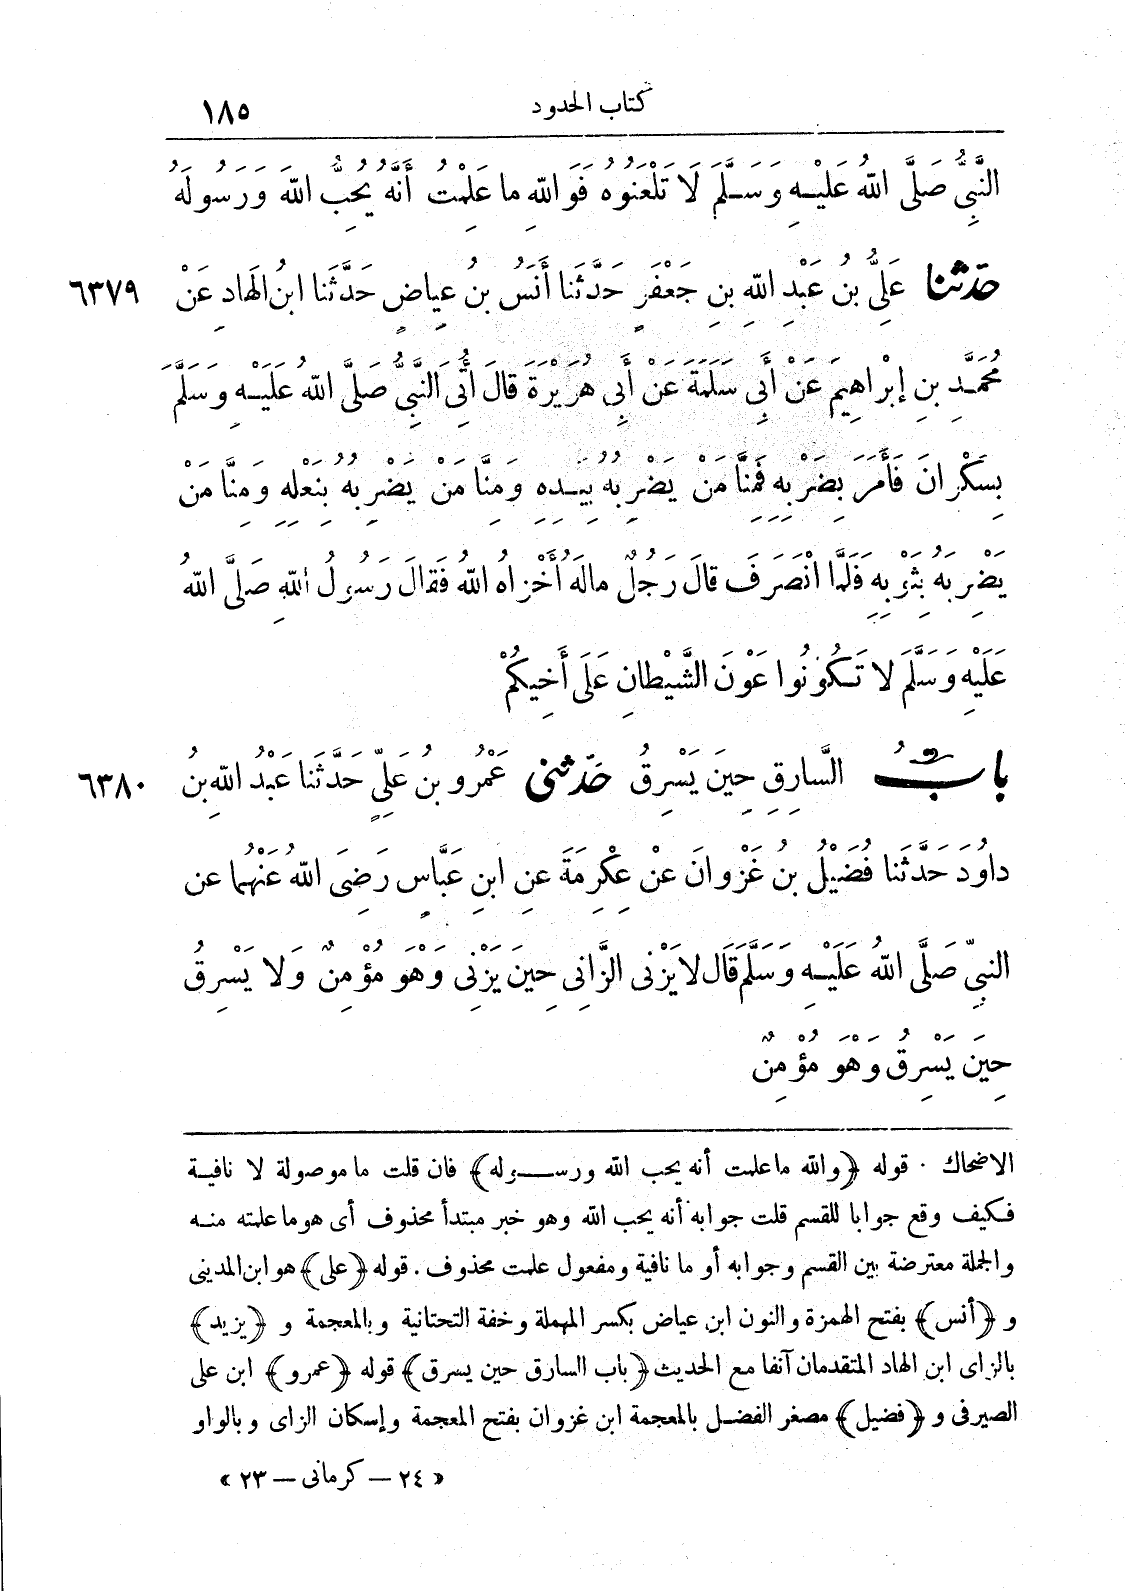 كتاب الحدود ١٨٥
النَّبِيُّ صَلَّى اللّٰهُ عَلَيْهِ وَسَلَّمَ لَا تَلْعَنُوهُ فَوَاللّٰهِ ما عَلِمْتُ أَنَّهُ يُحِبُّ اللّٰهَ وَرَسُولَهُ
حدثنا عَلِيُّ بنُ عَبْدِ اللّٰهِ بنِ جَعْفَرٍ حَدَّثَنا أَنَسُ بنُ عِياضٍ حَدَّثَنا ابنُ الهَادِ عَنْ ٦٣٧٩
مُحَمَّدِ بنِ إبْراهِيمَ عَنْ أَبِي سَلَمَةَ عَنْ أَبِي هُرَيْرَةَ قالَ أُتِيَ النَّبِيُّ صَلَّى اللّٰهُ عَلَيْهِ وَسَلَّمَ
بِسَكْرانَ فَأَمَرَ بِضَرْبِهِ فَمِنَّا مَنْ يَضْرِبُهُ بِيَدِهِ وَمِنَّا مَنْ يَضْرِبُهُ بِنَعْلِهِ وَمِنَّا مَنْ
يَضْرِبُهُ بِثَوْبِهِ فَلَمَّا انْصَرَفَ قالَ رَجُلٌ مالَهُ أَخْزاهُ اللّٰهُ فَقالَ رَسُولُ اللّٰهِ صَلَّى اللّٰهُ
عَلَيْهِ وَسَلَّمَ لا تَكُونُوا عَوْنَ الشَّيْطانِ عَلَى أَخِيكُمْ
بابُ السَّارِقِ حِينَ يَسْرِقُ حدثنى عَمْرُو بنُ عَلِيٍّ حَدَّثَنا عَبْدُ اللّٰهِ بنُ ٦٣٨٠
داوُدَ حَدَّثَنا فُضَيْلُ بنُ غَزْوانَ عَنْ عِكْرِمَةَ عَنِ ابنِ عَبَّاسٍ رَضِىَ اللّٰهُ عَنْهُما عن
النبيّ صَلَّى اللّٰهُ عَلَيْهِ وَسَلَّمَ قَالَ لا يَزْنى الزَّانِى حِينَ يَزْنِى وَهْوَ مُؤْمِنٌ وَلا يَسْرِقُ
حِينَ يَسْرِقُ وَهْوَ مُؤْمِنٌ
الاضحاك . قوله ﴿والله ما علمت أنه يحب الله ورسوله﴾ فان قلت ما موصولة لا نافية
فكيف وقع جوابا للقسم قلت جوابه أنه يحب الله وهو خبر مبتدأ محذوف أى هو ما علمته منه
والجملة معترضة بين القسم وجوابه أو ما نافية ومفعول علمت محذوف . قوله ﴿على﴾ هو ابن المدينى
و ﴿أنس﴾ بفتح الهمزة والنون ابن عياض بكسر المهملة وخفة التحتانية وبالمعجمة و ﴿يزيد﴾
بالزاى ابن الهاد المتقدمان آنفا مع الحديث ﴿باب السارق حين يسرق﴾ قوله ﴿عمرو﴾ ابن على
الصيرفى و ﴿فضيل﴾ مصغر الفضل بالمعجمة ابن غزوان بفتح المعجمة وإسكان الزاى وبالواو
« ٢٤ – كرمانى – ٢٣ »